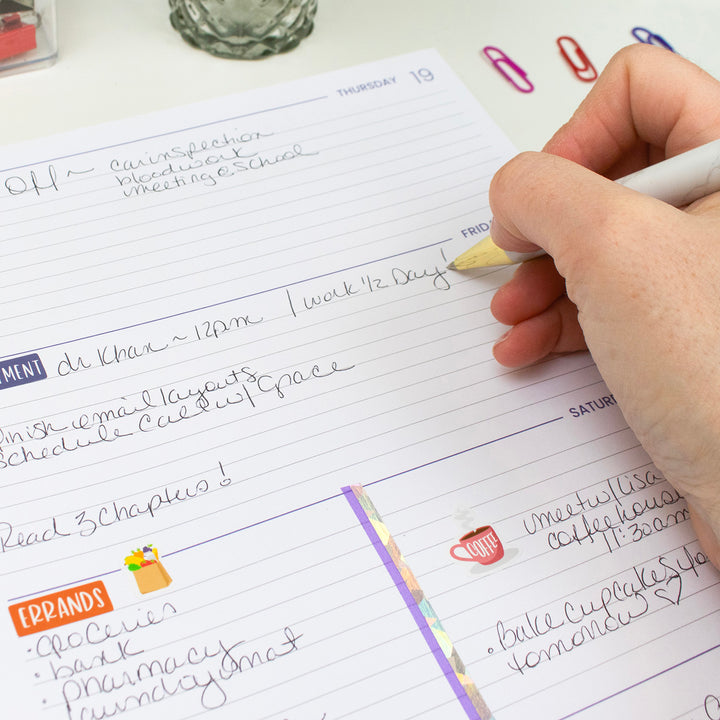 THURSDAY 19
Off ~ car inspection
bloodwork
meeting @ school
FRID
MENT dr Khan ~ 12pm | work 1/2 Day!
finish email layouts
schedule call w/ Grace
Read 3 chapters!
SATUR
COFFEE
meet w/ lisa
coffee house
11:30am
• Bake cupcakes 4
tomorrow ♡
ERRANDS
• groceries
• bank
• pharmacy
laundromat